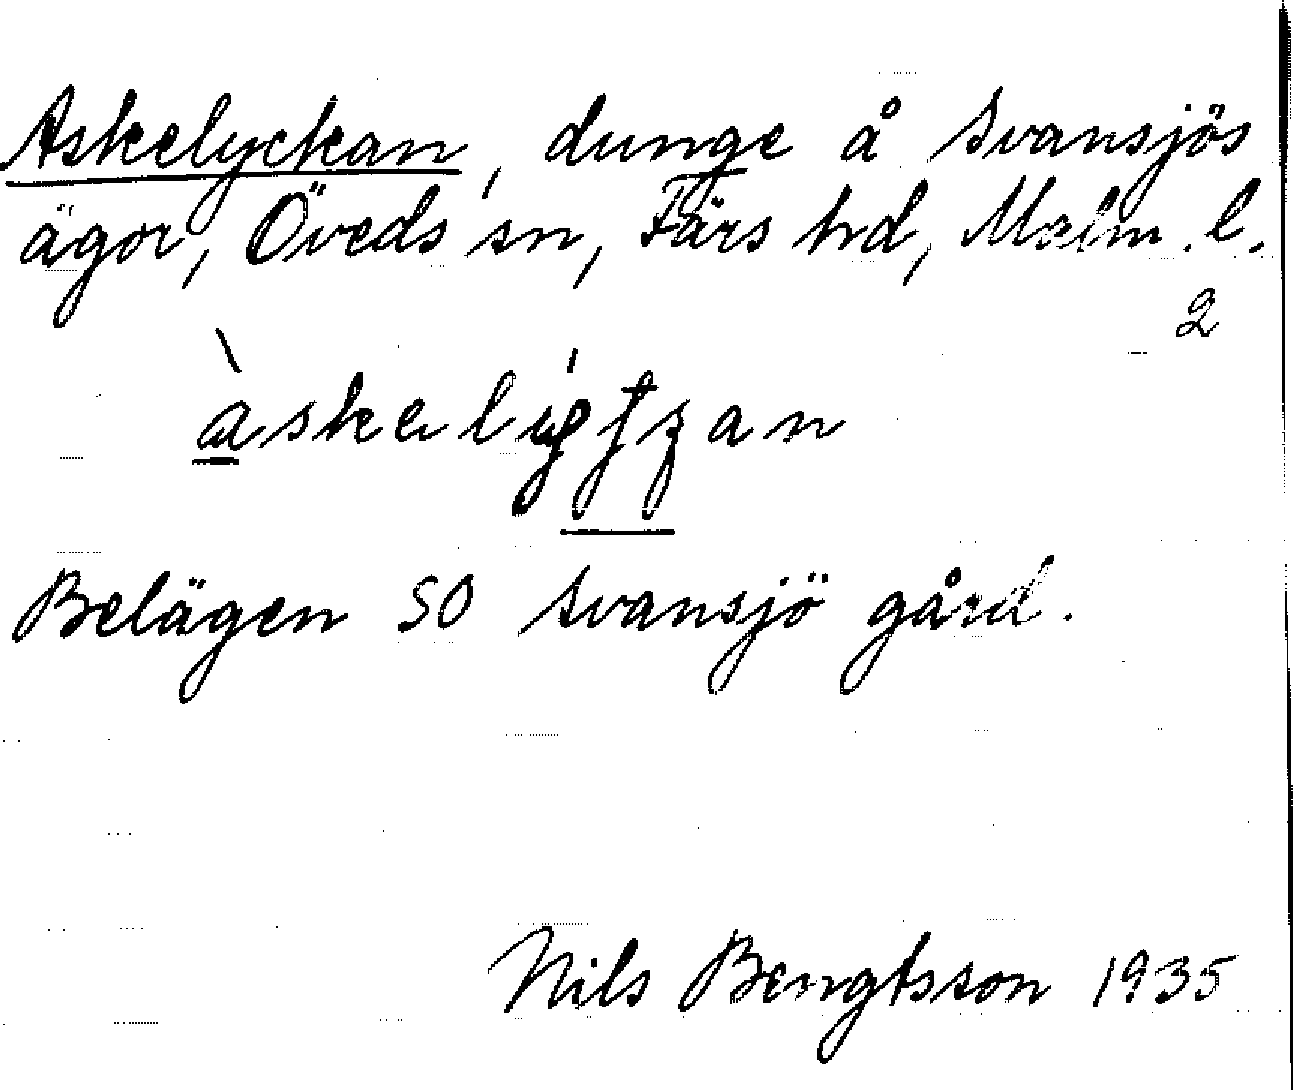 Askelyckan, dunge å Svansjös
ägor, Öveds sn, Färs hd, Malm. l.
2
Belägen SO Svansjö gård.
Nils Bengtsson 1935